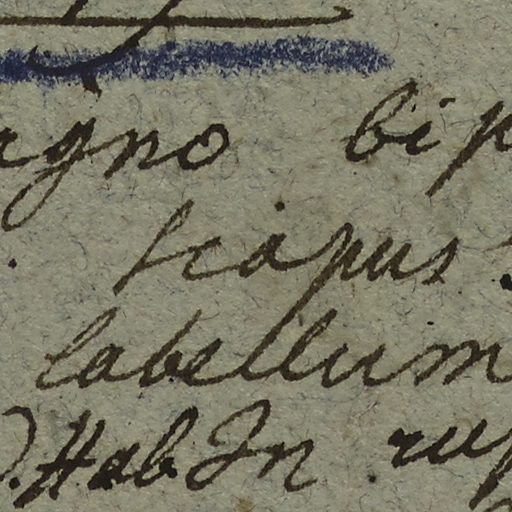 agno bip
. scapus
labellum
). Hab In rup